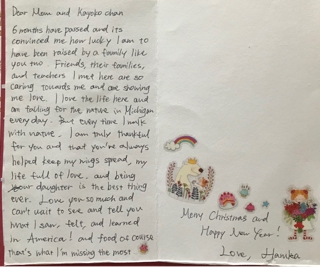 Dear Mom and Kayoko chan
6 months have passed and its
convinced me how lucky I am to
have been raised by a family like
you two. Friends, their families,
and teachers I met here are so
caring towards me and are showing
me love. I love the life here and
am falling for the nature in Michigan
every day. But every time I walk
with nature, I am truly thankful
for you and that you're always
helped keep my wings spread, my
life full of love, and being
your daughter is the best thing
ever. Love you so much and
can't wait to see and tell you
what I saw, felt, and learned
in America! and food of course
that's what I'm missing the most
Merry Christmas and
Happy New Year!
Love, Haruka